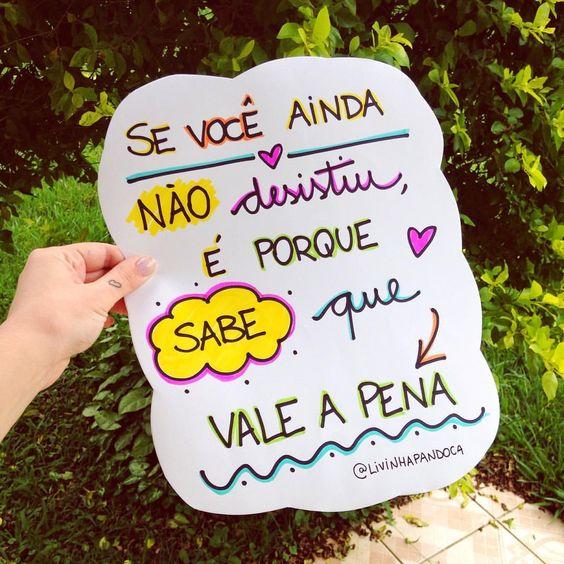 SE VOCÊ AINDA
NÃO desistiu,
É PORQUE
SABE que
VALE A PENA
@LIVINHAPANDOCA